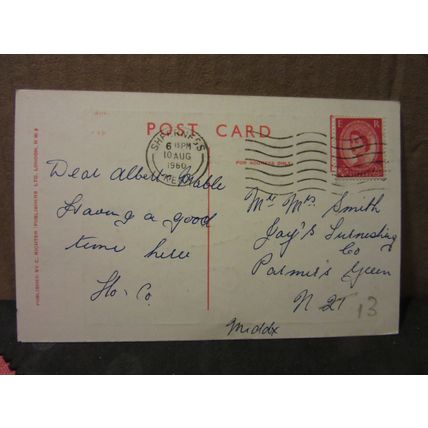 POST CARD
FOR ADDRESS ONLY
SHEERNESS
6 15 PM
10 AUG
1960
KENT
E R
Dear Albert
Having a good
time here
Flo. Co.
Mr Mrs Smith
Jay's Furnishing
Co
Palmers Green
N
Middx
13
PUBLISHED BY C. RICHTER (PUBLISHERS) LTD. LONDON, N.W.2